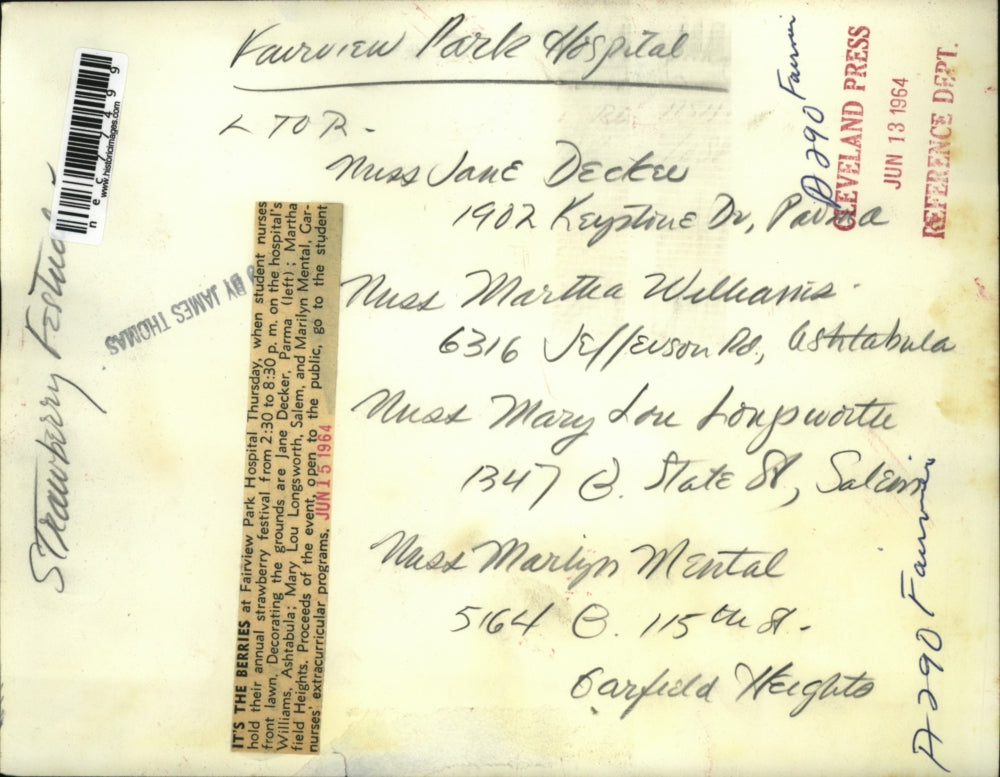 Fairview Park Hospital
L TO R-
Miss Jane Decker
1902 Keystone Dr, Parma
Miss Martha Williams
6316 Jefferson Rd, Ashtabula
Miss Mary Lou Longsworth
1347 E. State St, Salem
Miss Marlyn Mental
5164 E. 115th St.
Garfield Heights
Strawberry Festival
www.historicimages.com
BY JAMES THOMAS
IT'S THE BERRIES at Fairview Park Hospital Thursday, when student nurses
hold their annual strawberry festival from 2:30 to 8:30 p. m. on the hospital's
front lawn. Decorating the grounds are Jane Decker, Parma (left); Martha
Williams, Ashtabula; Mary Lou Longsworth, Salem, and Marilyn Mental, Gar-
field Heights. Proceeds of the event, open to the public, go to the student
nurses' extracurricular programs.
JUN 15 1964
A290 Fairview
CLEVELAND PRESS
JUN 13 1964
REFERENCE DEPT.
A290 Fairview